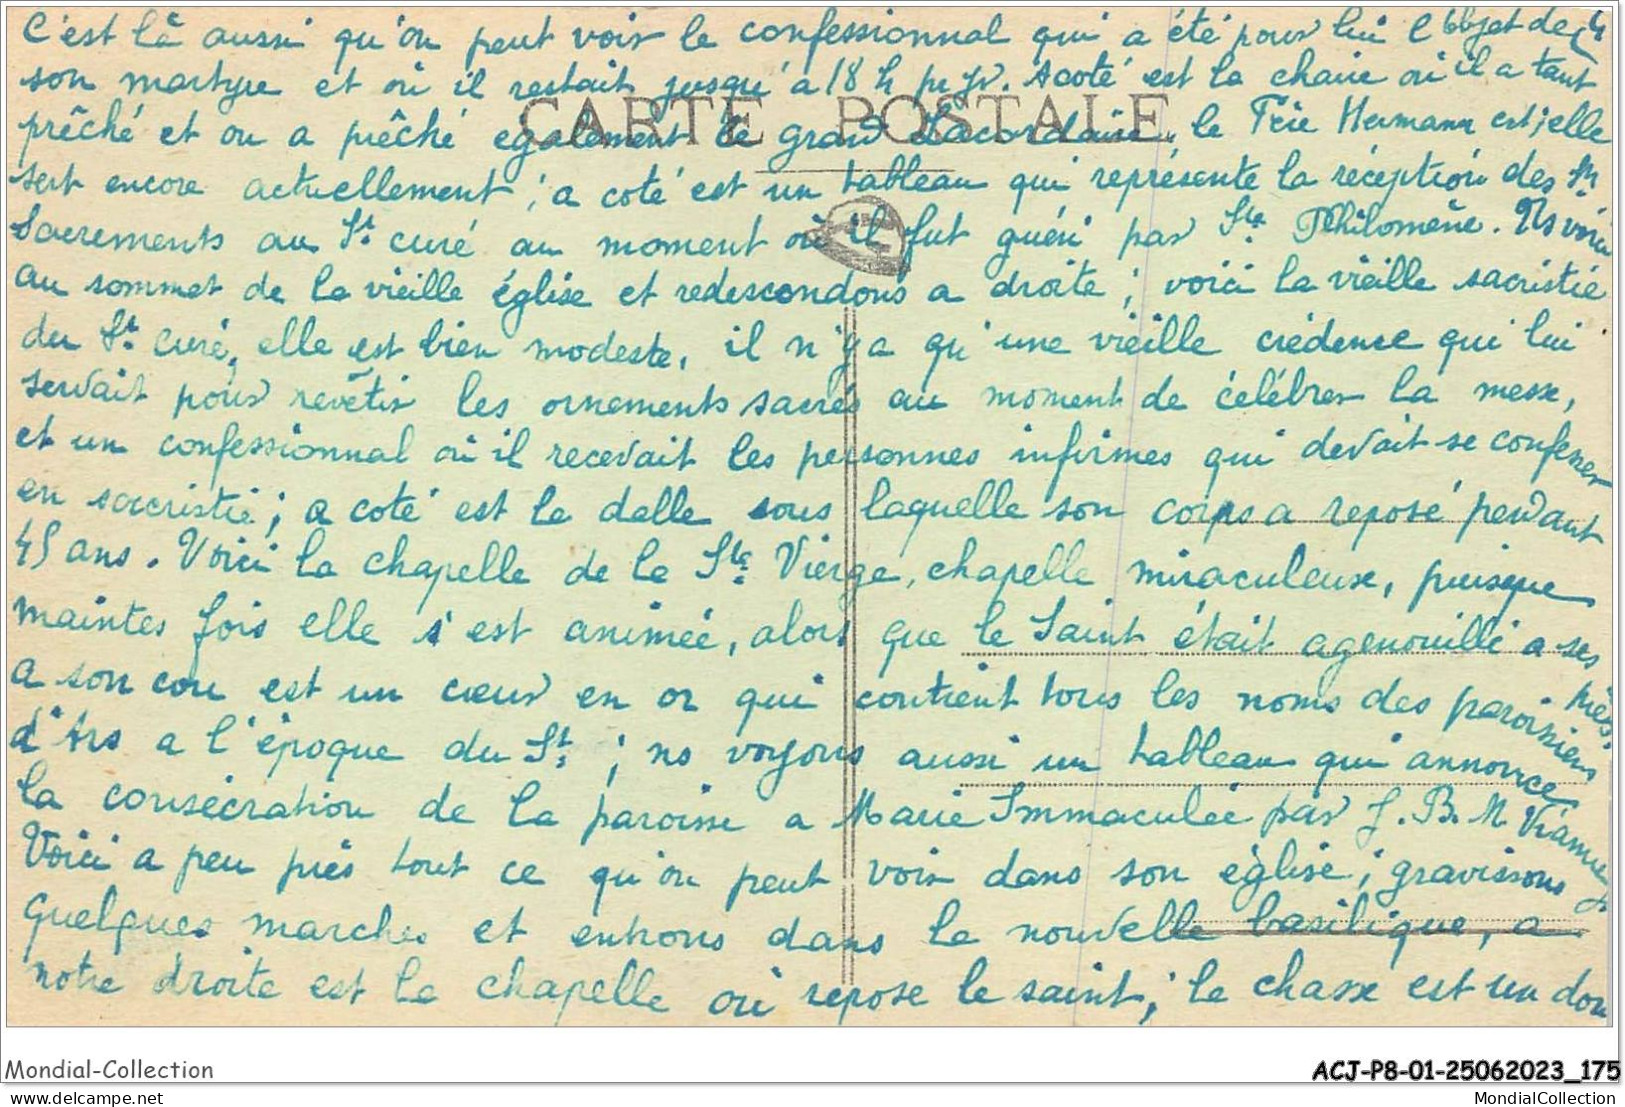 C'est là aussi qu'on peut voir le confessionnal qui a été pour lui l'objet de
son martyre et où il restait jusqu'à 18 h pr jr. A coté est la chaire où il a tant
CARTE POSTALE
prêché et ou a prêché egalement le grand Lacordaire, le Frère Hermann est; elle
sert encore actuellement; a coté est un tableau qui représente la réception des
Sacrements au St. curé au moment où il fut guéri par Ste. Philomène. Ns voici
au sommet de la vieille église et redescendons a droite; voici la vieille sacristie
du St. curé, elle est bien modeste, il n'y a qu'une vieille crédence qui lui
servait pour revêtir les ornements sacrés au moment de célébrer la messe,
et un confessionnal où il recevait les personnes infirmes qui devait se confesser
en sacristie; a coté est la dalle sous laquelle son corps a reposé pendant
45 ans. Voici la chapelle de la Ste. Vierge, chapelle miraculeuse, puisque
maintes fois elle s'est animée, alors que le Saint était agenouillé a ses pieds.
a son cou est un cœur en or qui contient tous les noms des paroissiens
d'Ars a l'époque du St.; ns voyons aussi un tableau qui annonce
la consécration de la paroisse a Marie Immaculée par J. B. M Vianney
Voici a peu près tout ce qu'on peut voir dans son église; gravissons
quelques marches et entrons dans la nouvelle basilique, a
notre droite est la chapelle où repose le saint; la chasse est un don
Mondial-Collection
ACJ-P8-01-25062023_175
www.delcampe.net
MondialCollection